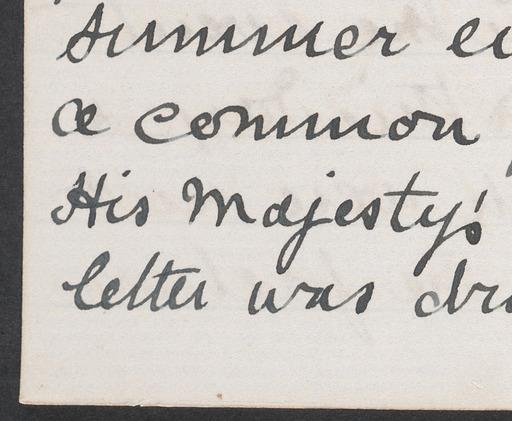 summer
a common
His Majesty's
letter was